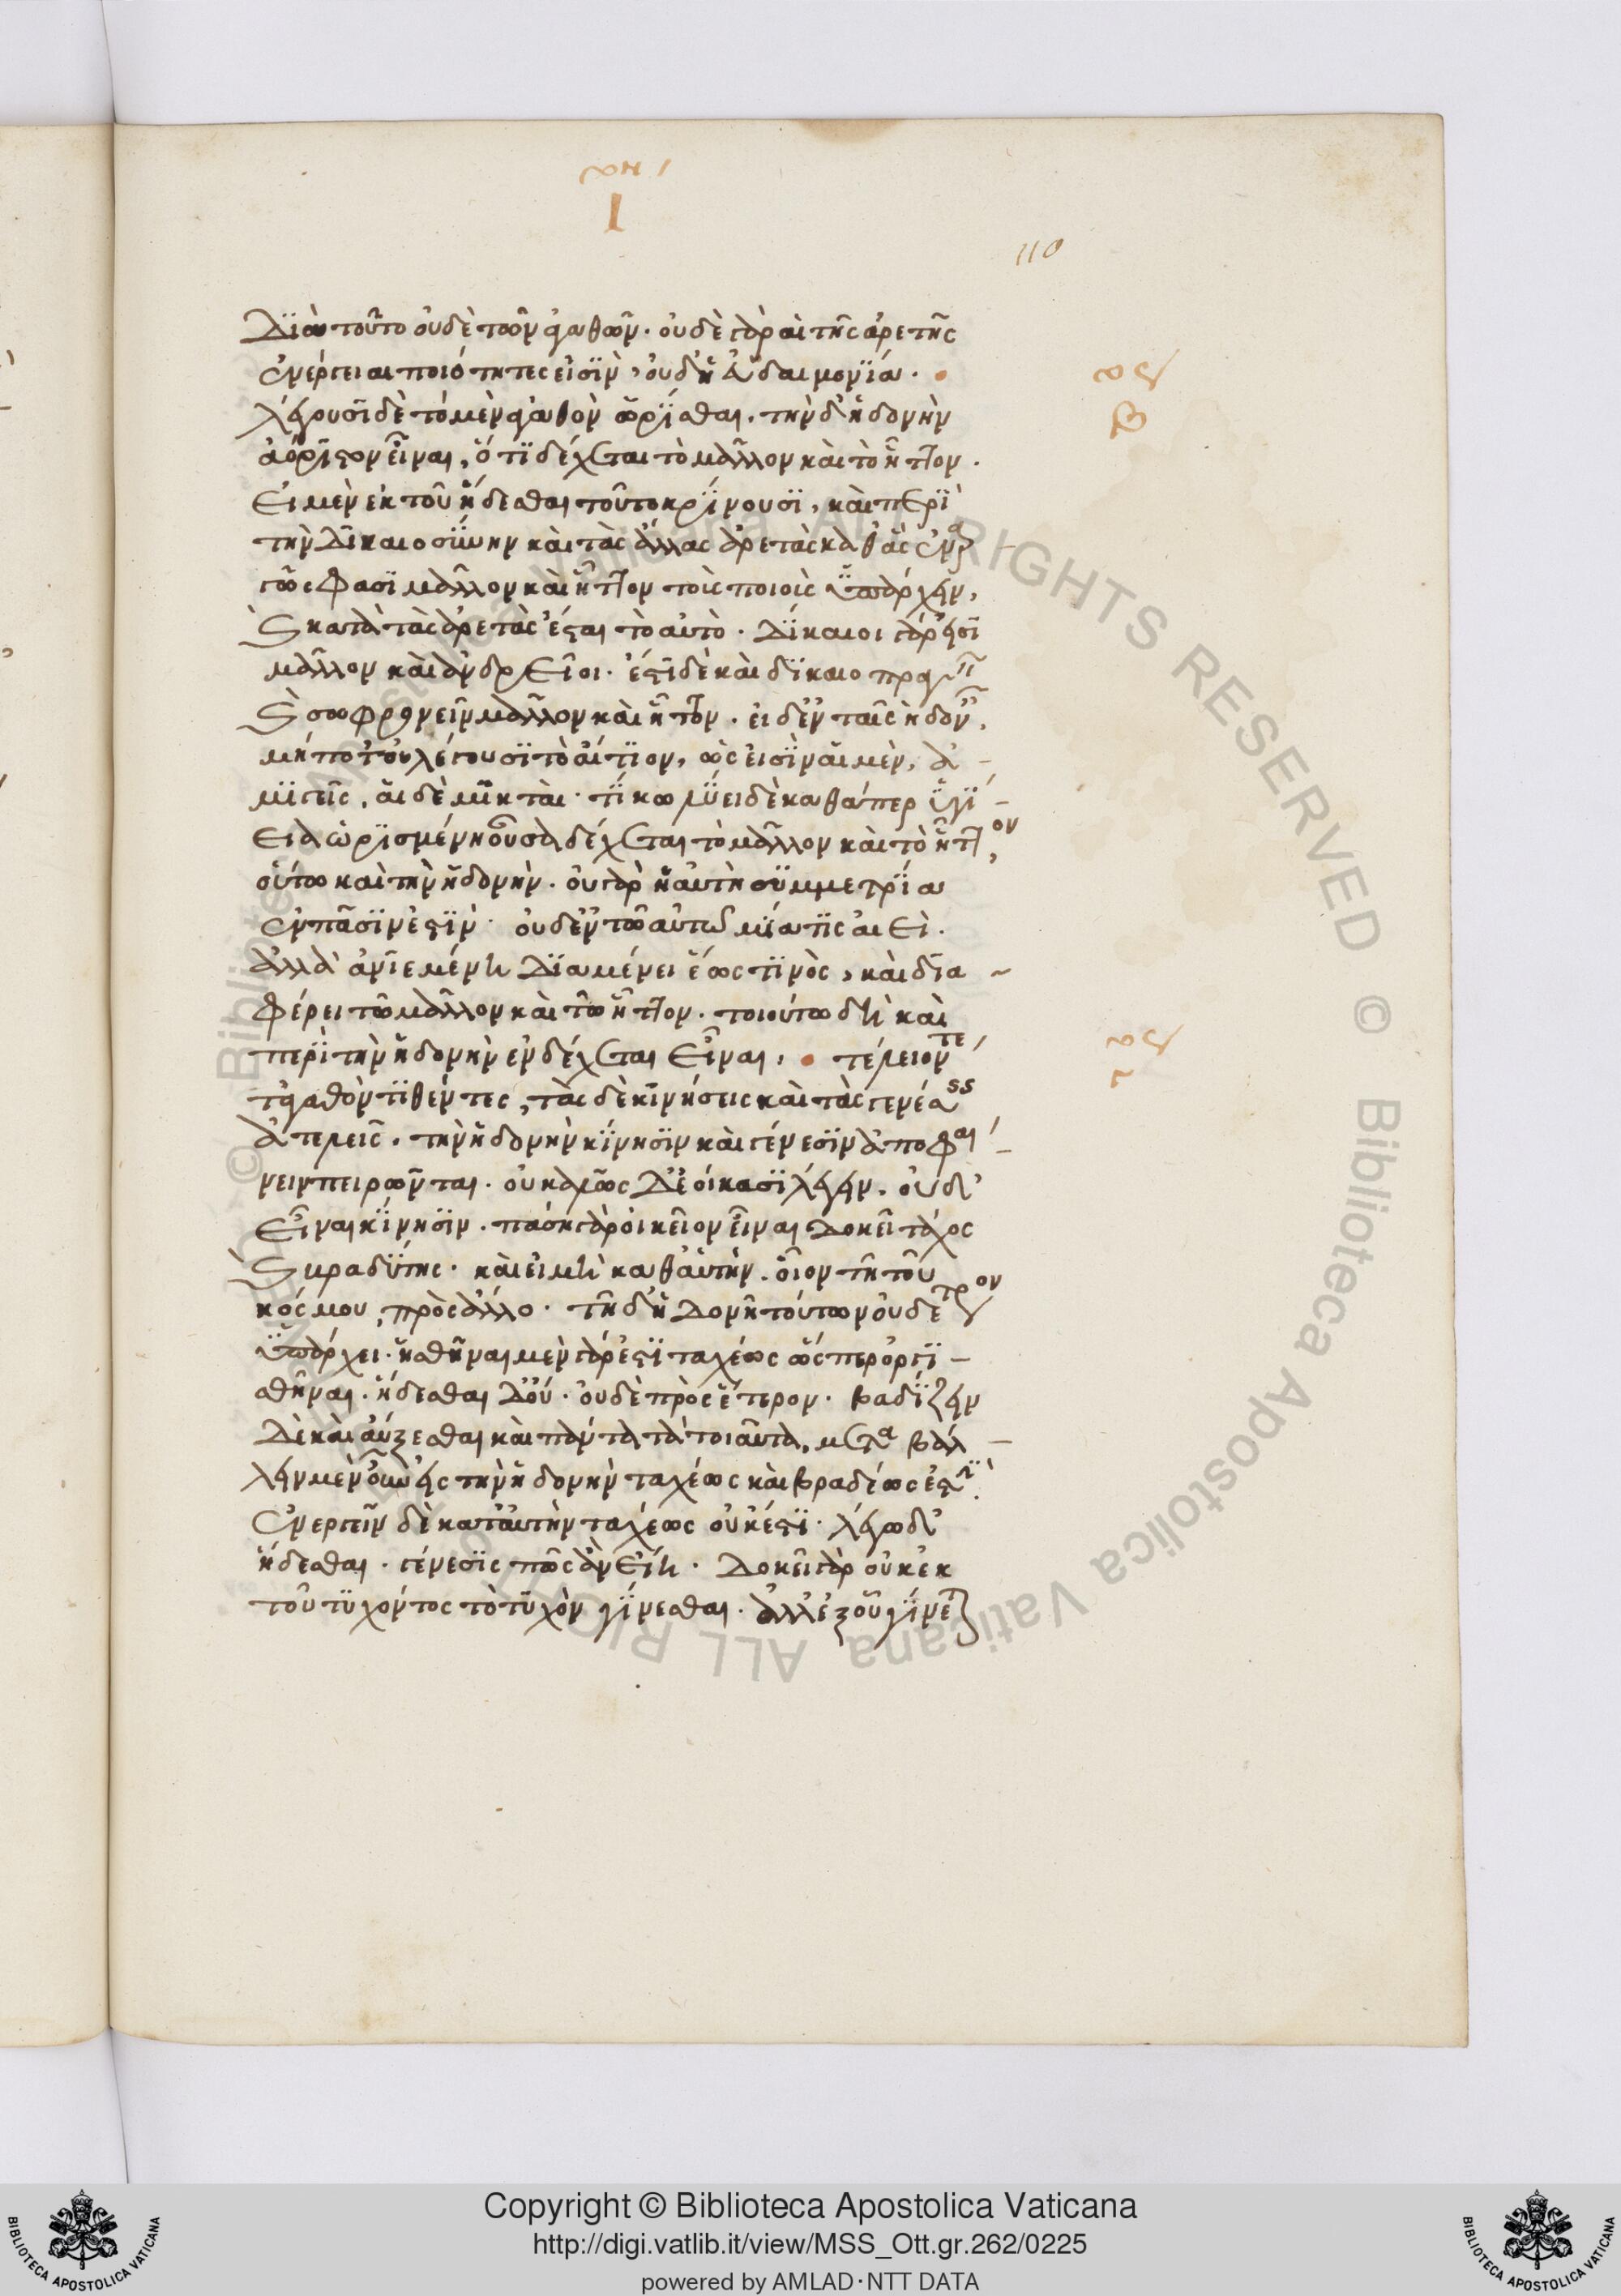 110
Διὰ τοῦτο οὐδὲ τῶν ἀγαθῶν· οὐδὲ γὰρ αἱ τῆς ἀρετῆς
ἐνέργειαι ποιότητές εἰσιν, οὐδ' ἡ εὐδαιμονία·
λέγουσι δὲ τὸ μὲν ἀγαθὸν ὡρίσθαι, τὴν δ' ἡδονὴν
ἀόριστον εἶναι, ὅτι δέχεται τὸ μᾶλλον καὶ τὸ ἧττον·
Εἰ μὲν ἐκ τοῦ ἥδεσθαι τοῦτο κρίνουσι, καὶ περὶ
τὴν δικαιοσύνην καὶ τὰς ἄλλας ἀρετὰς καθ' ἃς ἐναρ
γῶς φασὶ μᾶλλον καὶ ἧττον τοὺς ποιοὺς ὑπάρχειν,
καὶ κατὰ τὰς ἀρετὰς ἔσται τὸ αὐτό· Δίκαιοι γάρ εἰσι
μᾶλλον καὶ ἀνδρεῖοι· ἔστι δὲ καὶ δικαιοπραγεῖν
καὶ σωφρονεῖν μᾶλλον καὶ ἧττον· εἰ δ' ἐν ταῖς ἡδοναῖς,
μήποτ' οὐ λέγουσι τὸ αἴτιον, ὡς εἰσὶν αἱ μὲν, ἀ
μιγεῖς, αἱ δὲ μικταί· τί κωλύει δὲ καθάπερ ὑγί
εια ὡρισμένη οὖσα δέχεται τὸ μᾶλλον καὶ τὸ ἧττον,
οὕτω καὶ τὴν ἡδονήν· οὐ γὰρ ἡ αὐτὴ συμμετρία
ἐν πᾶσίν ἐστιν· οὐδ' ἐν τῷ αὐτῷ μία τις ἀεί·
ἀλλὰ ἀνιεμένη διαμένει ἕως τινός, καὶ δια
φέρει τῷ μᾶλλον καὶ τῷ ἧττον· τοιούτω δὴ καὶ
περὶ τὴν ἡδονὴν ἐνδέχεται εἶναι, τέλειόν τε
τἀγαθὸν τιθέντες, τὰς δὲ κινήσεις καὶ τὰς γενέσεις
ἀτελεῖς· τὴν ἡδονὴν κίνησιν καὶ γένεσιν ἀποφαί
νειν πειρῶνται· οὐ καλῶς δ' ἐοίκασι λέγειν, οὐδ'
εἶναι κίνησιν· πάσῃ γὰρ οἰκεῖον εἶναι δοκεῖ τάχος
καὶ βραδύτης· καὶ εἰ μὴ καθ' αὑτήν, οἷον τῇ τοῦ
κόσμου, πρὸς ἄλλο· τῇ δ' ἡδονῇ τούτων οὐδέτερον
ὑπάρχει· ἡσθῆναι μὲν γὰρ ἔστι ταχέως ὥσπερ ὀργι
σθῆναι· ἥδεσθαι δ' οὔ· οὐδὲ πρὸς ἕτερον· βαδίζειν
δὲ καὶ αὔξεσθαι καὶ πάντα τὰ τοιαῦτα, μεταβάλ
λειν μὲν οὖν εἰς τὴν ἡδονὴν ταχέως καὶ βραδέως ἐστί·
ἐνεργεῖν δὲ κατ' αὐτὴν ταχέως οὐκ ἔστι· λέγω δ'
ἥδεσθαι· γένεσις πῶς ἂν εἴη· Δοκεῖ γὰρ οὐκ ἐκ
τοῦ τυχόντος τὸ τυχὸν γίνεσθαι· ἀλλ' ἐξ οὗ γίνεται
Copyright © Biblioteca Apostolica Vaticana
http://digi.vatlib.it/view/MSS_Ott.gr.262/0225
powered by AMLAD·NTT DATA